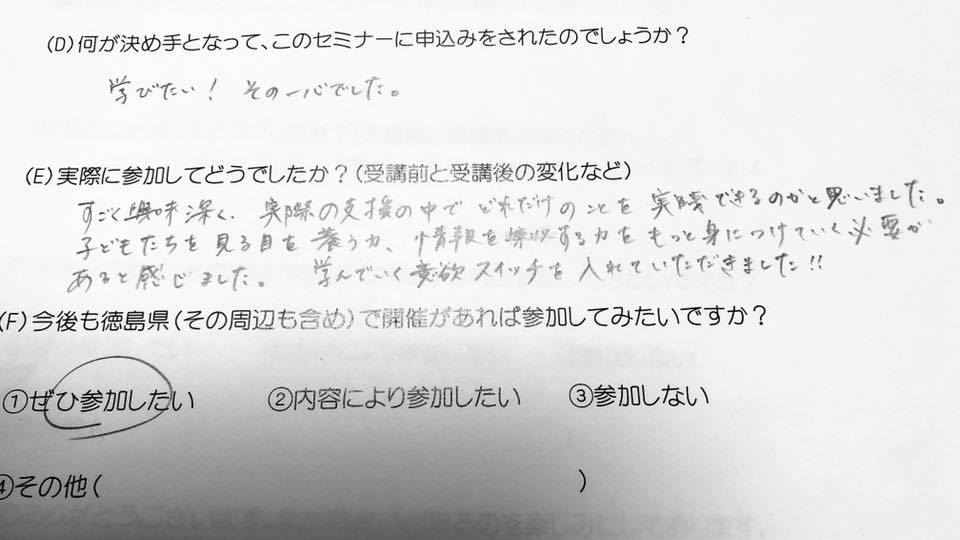 (D)何が決め手となって、このセミナーに申込みをされたのでしょうか？
学びたい！ その一心でした。
(E)実際に参加してどうでしたか？(受講前と受講後の変化など)
すごく興味深く、実際の支援の中でどれだけのことを実践できるのかと思いました。
子どもたちを見る目を養う力、情報を吸収する力をもっと身につけていく必要が
あると感じました。 学んでいく意欲スイッチを入れていただきました!!
(F)今後も徳島県(その周辺も含め)で開催があれば参加してみたいですか？
①ぜひ参加したい ②内容により参加したい ③参加しない
④その他( )